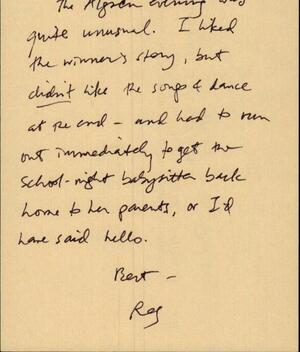 The Algren evening was
quite unusual. I liked
the winner's story, but
didn't like the songs & dance
at the end – and had to run
out immediately to get the
school-night babysitter back
home to her parents, or I'd
have said hello.
Best –
Reg